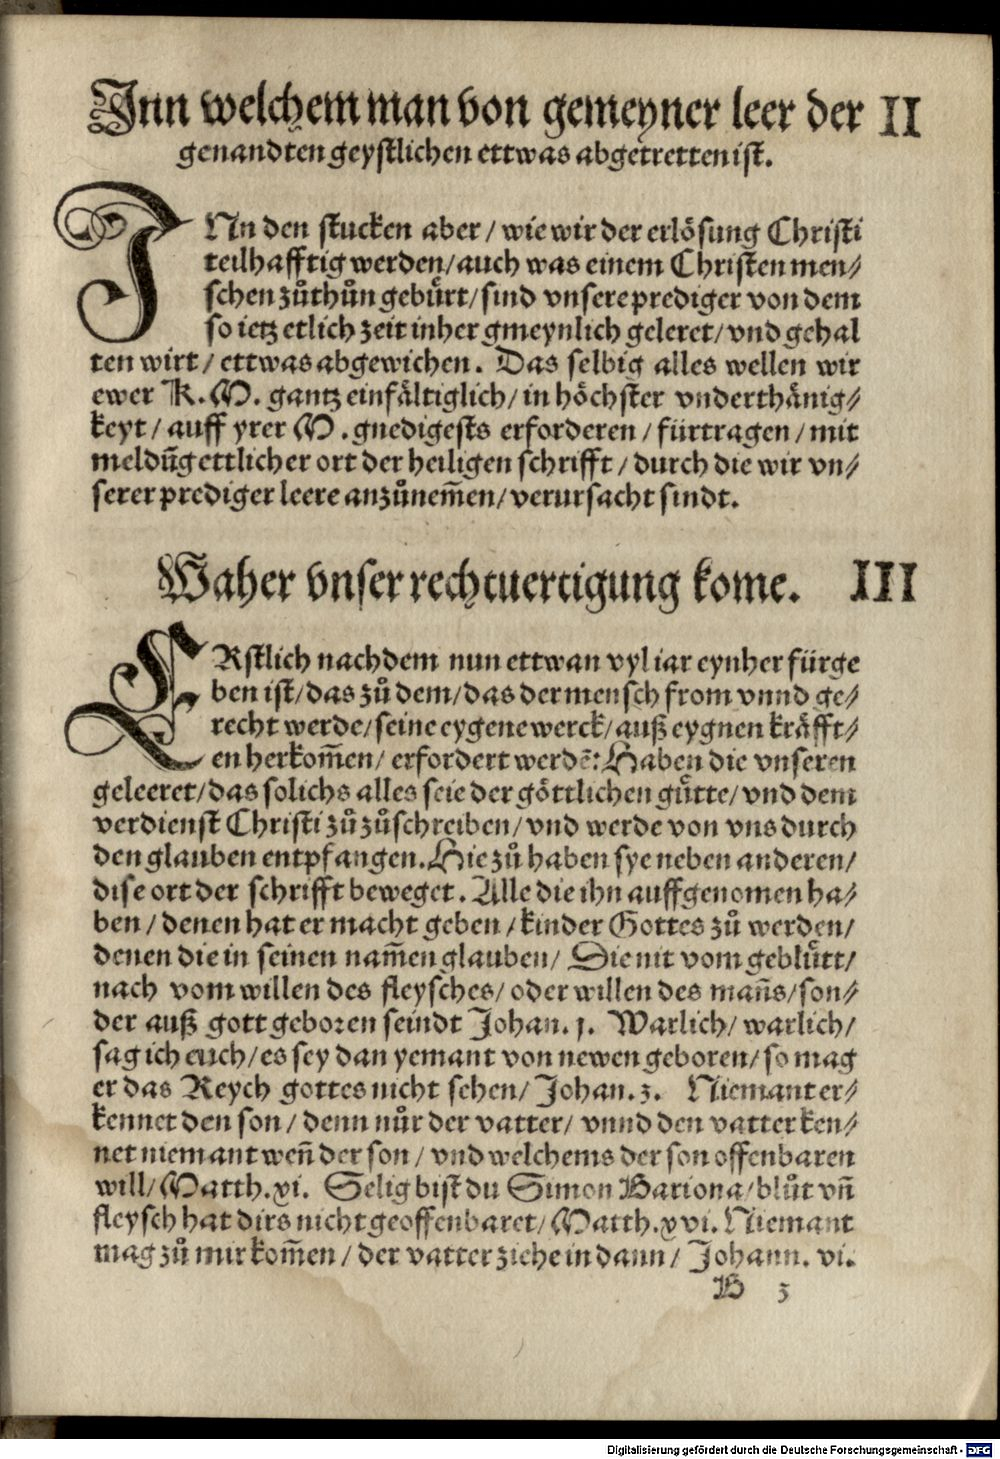 Inn welchem man von gemeyner leer der II
genandten geystlichen ettwas abgetretten ist.
INn den stucken aber / wie wir der erlösung Christi
teilhafftig werden / auch was einem Christen men⸗
schen zůthůn gebürt / sind vnsere prediger von dem
so ietz etlich zeit inher gmeynlich geleret / vnd gehal
ten wirt / ettwas abgewichen. Das selbig alles wellen wir
ewer K. M. gantz einfältiglich / in höchster vnderthänig⸗
keyt / auff yrer M. gnedigests erforderen / fürtragen / mit
meldūg ettlicher ort der heiligen schrifft / durch die wir vn⸗
serer prediger leere anzůnem̄en / verursacht sindt.
Waher vnser rechtuertigung kome. III
ERstlich nachdem nun ettwan vyl iar eynher fürge
ben ist / das zů dem / das der mensch from vnnd ge⸗
recht werde / seine eygene werck / auß eygnen kräfft⸗
en herkom̄en / erfordert werdē: Haben die vnseren
geleeret / das solichs alles seie der göttlichen gütte / vnd dem
verdienst Christi zů zůschreiben / vnd werde von vns durch
den glauben entpfangen. Hie zů haben sye neben anderen /
dise ort der schrifft beweget. Alle die ihn auffgenomen ha⸗
ben / denen hat er macht geben / kinder Gottes zů werden /
denen die in seinen nam̄en glauben / Die nit vom geblütt /
nach vom willen des fleysches / oder willen des man̄s / son⸗
der auß gott geboren seindt Johan. j. Warlich / warlich /
sag ich euch / es sey dan yemant von newen geboren / so mag
er das Reych gottes nicht sehen / Johan. 3. Niemant er⸗
kennet den son / denn nůr der vatter / vnnd den vatter ken⸗
net niemant wen̄ der son / vnd welchems der son offenbaren
will / Matth. xi. Selig bist du Simon Bariona / blůt vn̄
fleysch hat dirs nicht geoffenbaret / Matth. xvi. Niemant
mag zů mir kom̄en / der vatter ziehe in dann / Johann. vi.
B 3
Digitalisierung gefördert durch die Deutsche Forschungsgemeinschaft - DFG